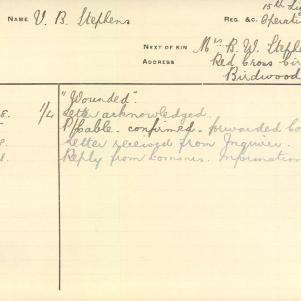 NAME V. B. Stephens
REG. &c. 15th
Operati
NEXT OF KIN Mrs R. W. Steph
ADDRESS Red Cross Cir
Birdwood
"Wounded".
1/4 Letter acknowledged.
P/Cable - confirmed - forwarded Co
Letter received from Inquirer.
Reply from London. Information